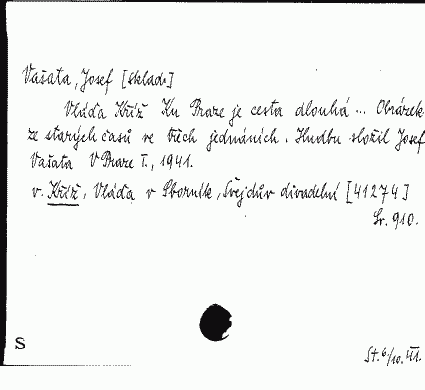 Vašata, Josef [sklad.]
Vláďa Kříž Ku Praze je cesta dlouhá ... Obrázek
ze starých časů ve třech jednáních. Hudbu složil Josef
Vašata V Praze I., 1941.
v. Kříž, Vláďa v Sborník, Švejdův divadelní [41274]
Sv. 910.
S
St. 6/10. III.